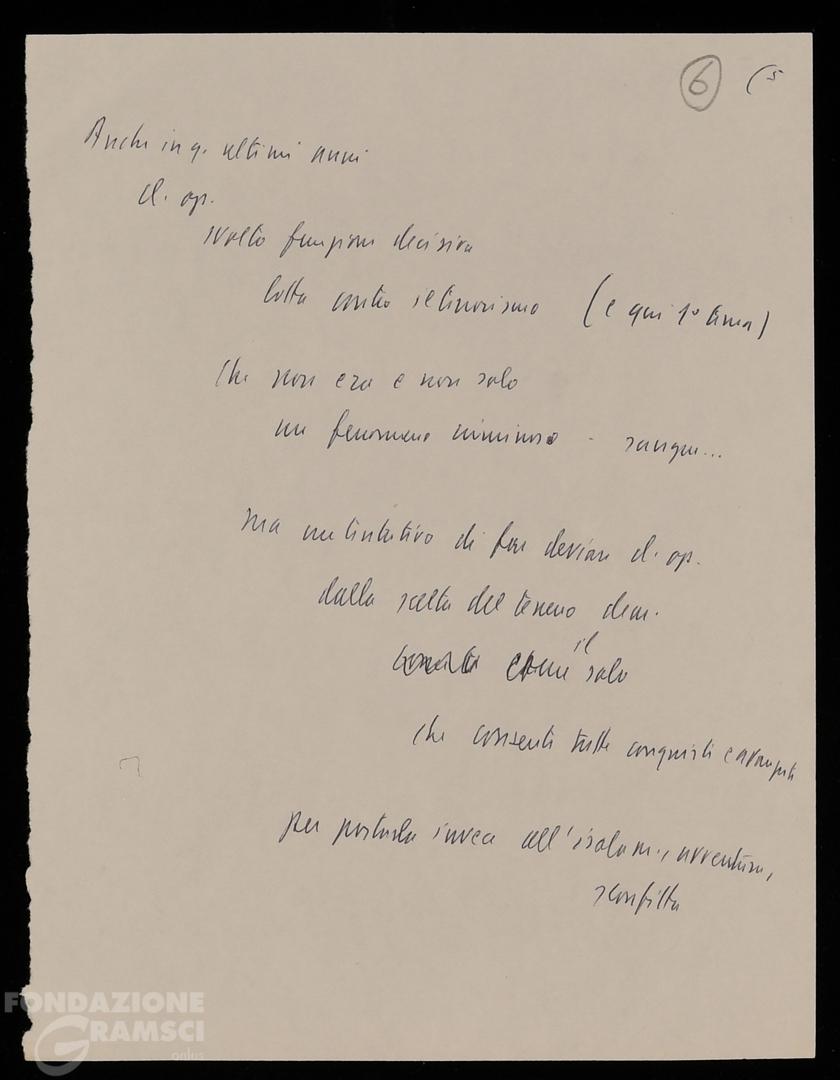 6 (5
Anche in q. ultimi anni
cl. op.
svolto funzione decisiva
lotta contro il terrorismo (e qui 1º tema)
che non era e non solo
un fenomeno criminoso - sangue...
ma un tentativo di far deviare cl. op.
dalla scelta del terreno dem.
come il solo
che consenti tutte conquiste e avanzate
per portarla invece all'isolam., avventura,
sconfitta
FONDAZIONE
GRAMSCI
onlus